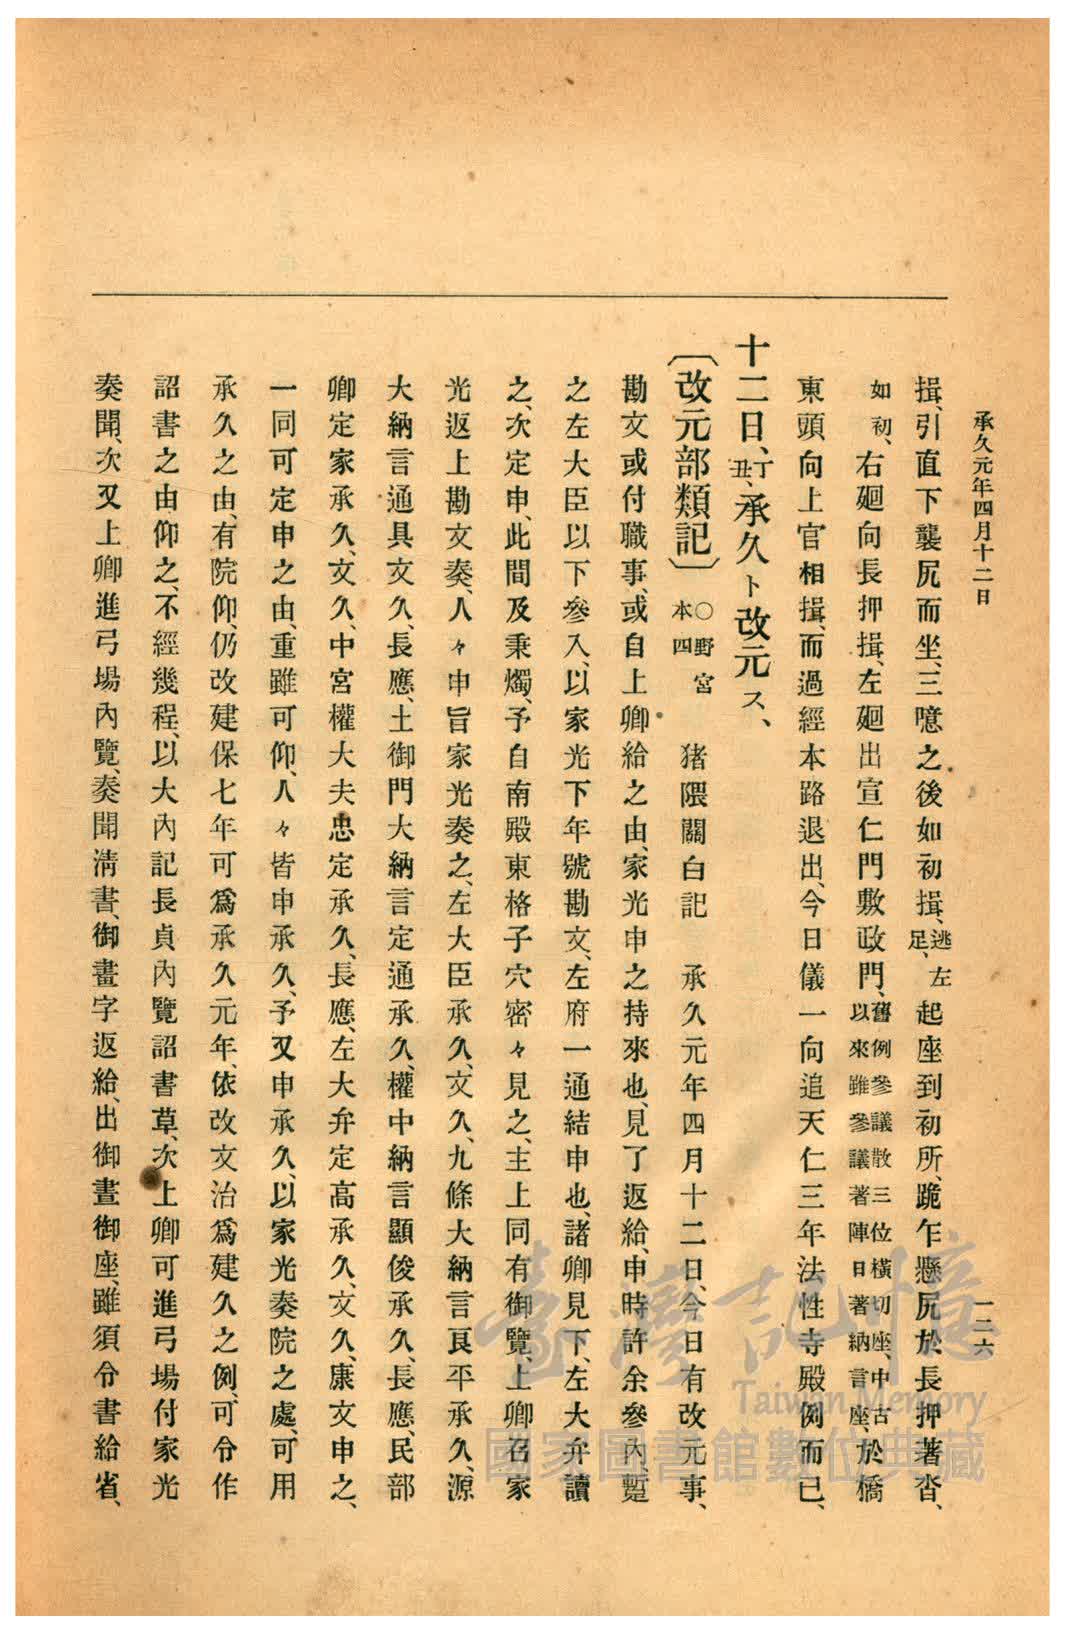 承久元年四月十二日
一二六
揖、引直下襲尻而坐、三噫之後如初揖、逃左足、起座到初所、跪乍懸尻於長押著沓、
如初、右廻向長押揖、左廻出宣仁門敷政門、舊例參議散三位橫切座、中古以來雖參議著陣日著納言座、於橋
東頭向上官相揖、而過經本路退出、今日儀一向追天仁三年法性寺殿例而已、
十二日、丁丑、承久ト改元ス、
〔改元部類記〕○野宮本四 猪隈關白記 承久元年四月十二日、今日有改元事、
勘文或付職事、或自上卿給之由、家光申之持來也、見了返給、申時許余參內、蹔
之左大臣以下參入、以家光下年號勘文、左府一通結申也、諸卿見下、左大弁讀
之、次定申、此間及秉燭、予自南殿東格子穴密々見之、主上同有御覽、上卿召家
光返上勘文奏、人々申旨家光奏之、左大臣承久、文久、九條大納言良平承久、源
大納言通具文久、長應、土御門大納言定通承久、權中納言顯俊承久、長應、民部
卿定家承久、文久、中宮權大夫忠定承久、長應、左大弁定高承久、文久、康文申之、
一同可定申之由、重雖可仰、人々皆申承久、予又申承久、以家光奏院之處、可用
承久之由、有院仰、仍改建保七年可爲承久元年、依改文治爲建久之例、可令作
詔書之由仰之、不經幾程、以大內記長貞內覽詔書草、次上卿可進弓場付家光
奏聞、次又上卿進弓場內覽、奏聞淸書、御畫字返給、出御晝御座、雖須令書給省、
臺灣記憶
Taiwan Memory
國家圖書館數位典藏